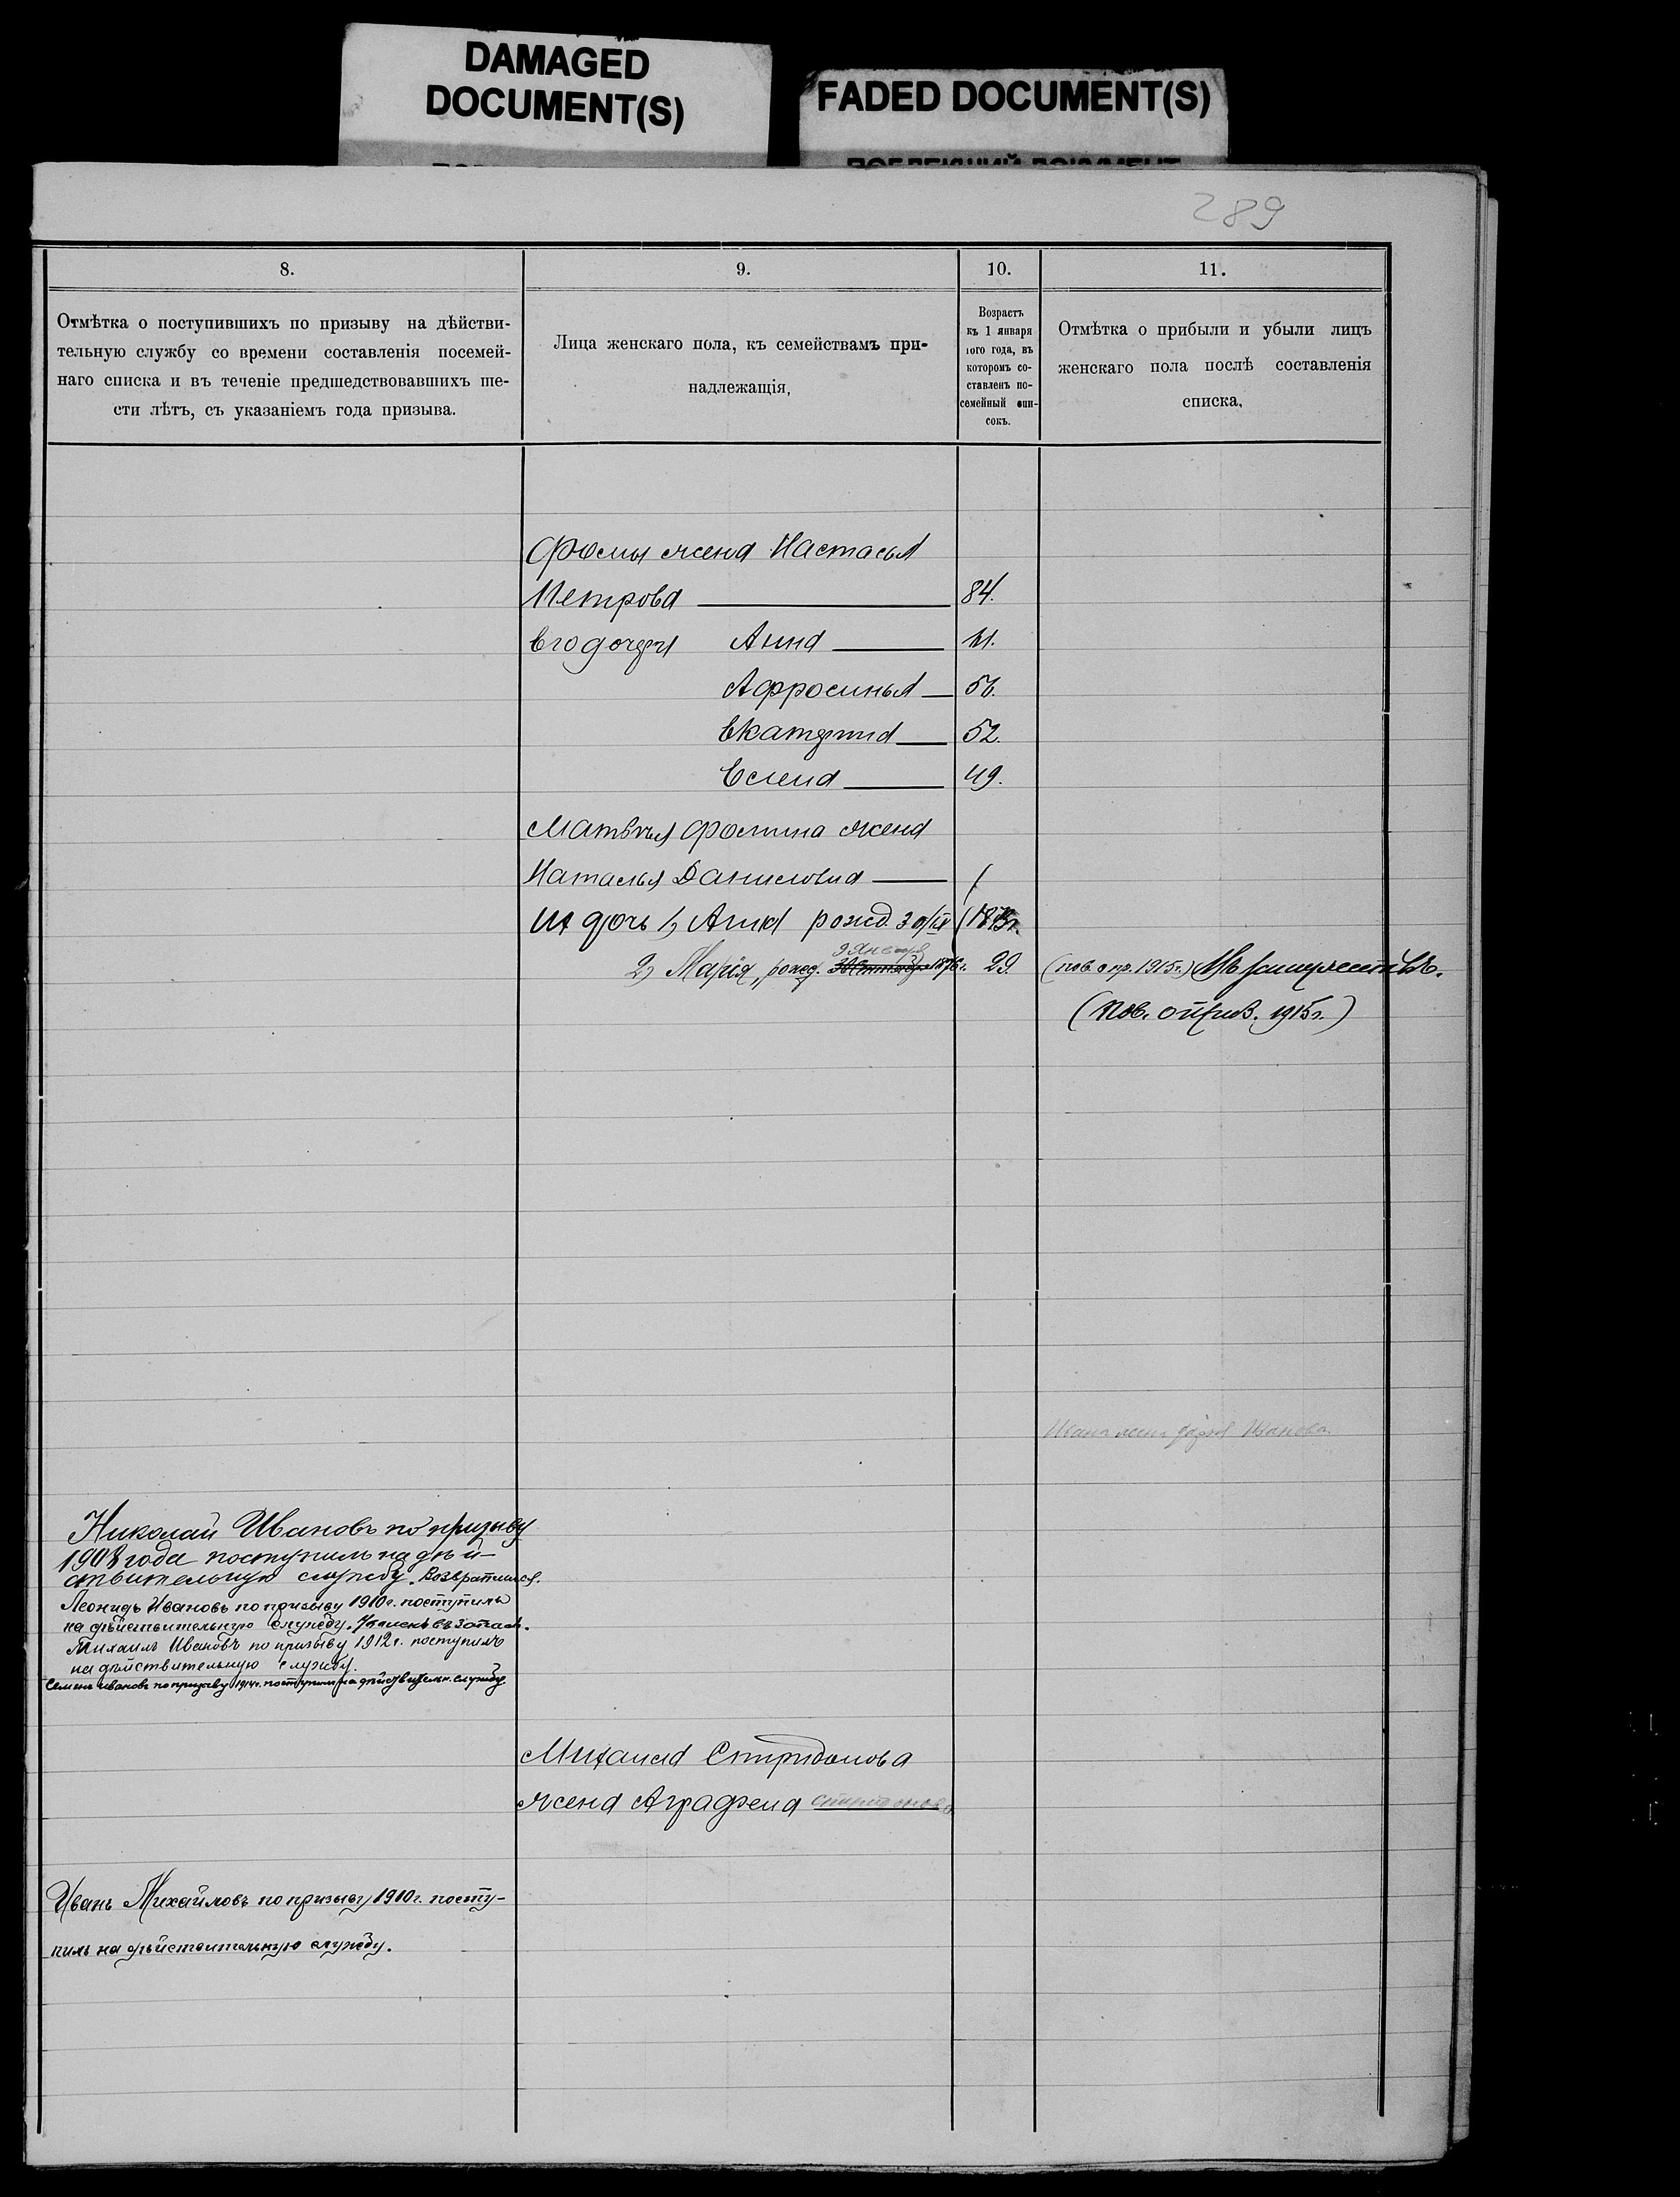 DAMAGED
DOCUMENT(S)
FADED DOCUMENT(S)
289
8.
9.
10.
11.
Отмѣтка о поступившихъ по призыву на дѣйстви-
тельную службу со времени составленія посемей-
наго списка и въ теченіе предшедствовавшихъ ше-
сти лѣтъ, съ указаніемъ года призыва.
Лица женскаго пола, къ семействамъ при-
надлежащія,
Возрастъ
къ 1 января
того года, въ
которомъ со-
ставленъ по-
семейный спи-
сокъ.
Отмѣтка о прибыли и убыли лицъ
женскаго пола послѣ составленія
списка,
Фомы жена Настасья
Петрова 84.
Его дочери Анна
Афросинья 56.
Екатерина 52.
Елена 49.
Матвѣя Фомина жена
Наталья Данилова
их дочь 1) Анна рожд. 30/IX
9 Января
2) Марія, рожд. 30 Сентября 1876 г. 29 (пов. о пр. 1915 г.) Въ замужествѣ.
(Пов. о приз. 1915 г.)
Николай Ивановъ по призыву
1908 года поступилъ на дѣй-
ствительную службу. Возвратился.
Леонидъ Ивановъ по призыву 1910 г. поступилъ
на дѣйствительную службу. Уволенъ въ запасъ.
Михаилъ Ивановъ по призыву 1912 г. поступилъ
на дѣйствительную службу.
Семенъ Ивановъ по призыву 1914 г. поступилъ на дѣйствительн. службу
Михаила Спиридонова
жена Аграфена
Иванъ Михайловъ по призыву 1910 г. посту-
пилъ на дѣйствительную службу.